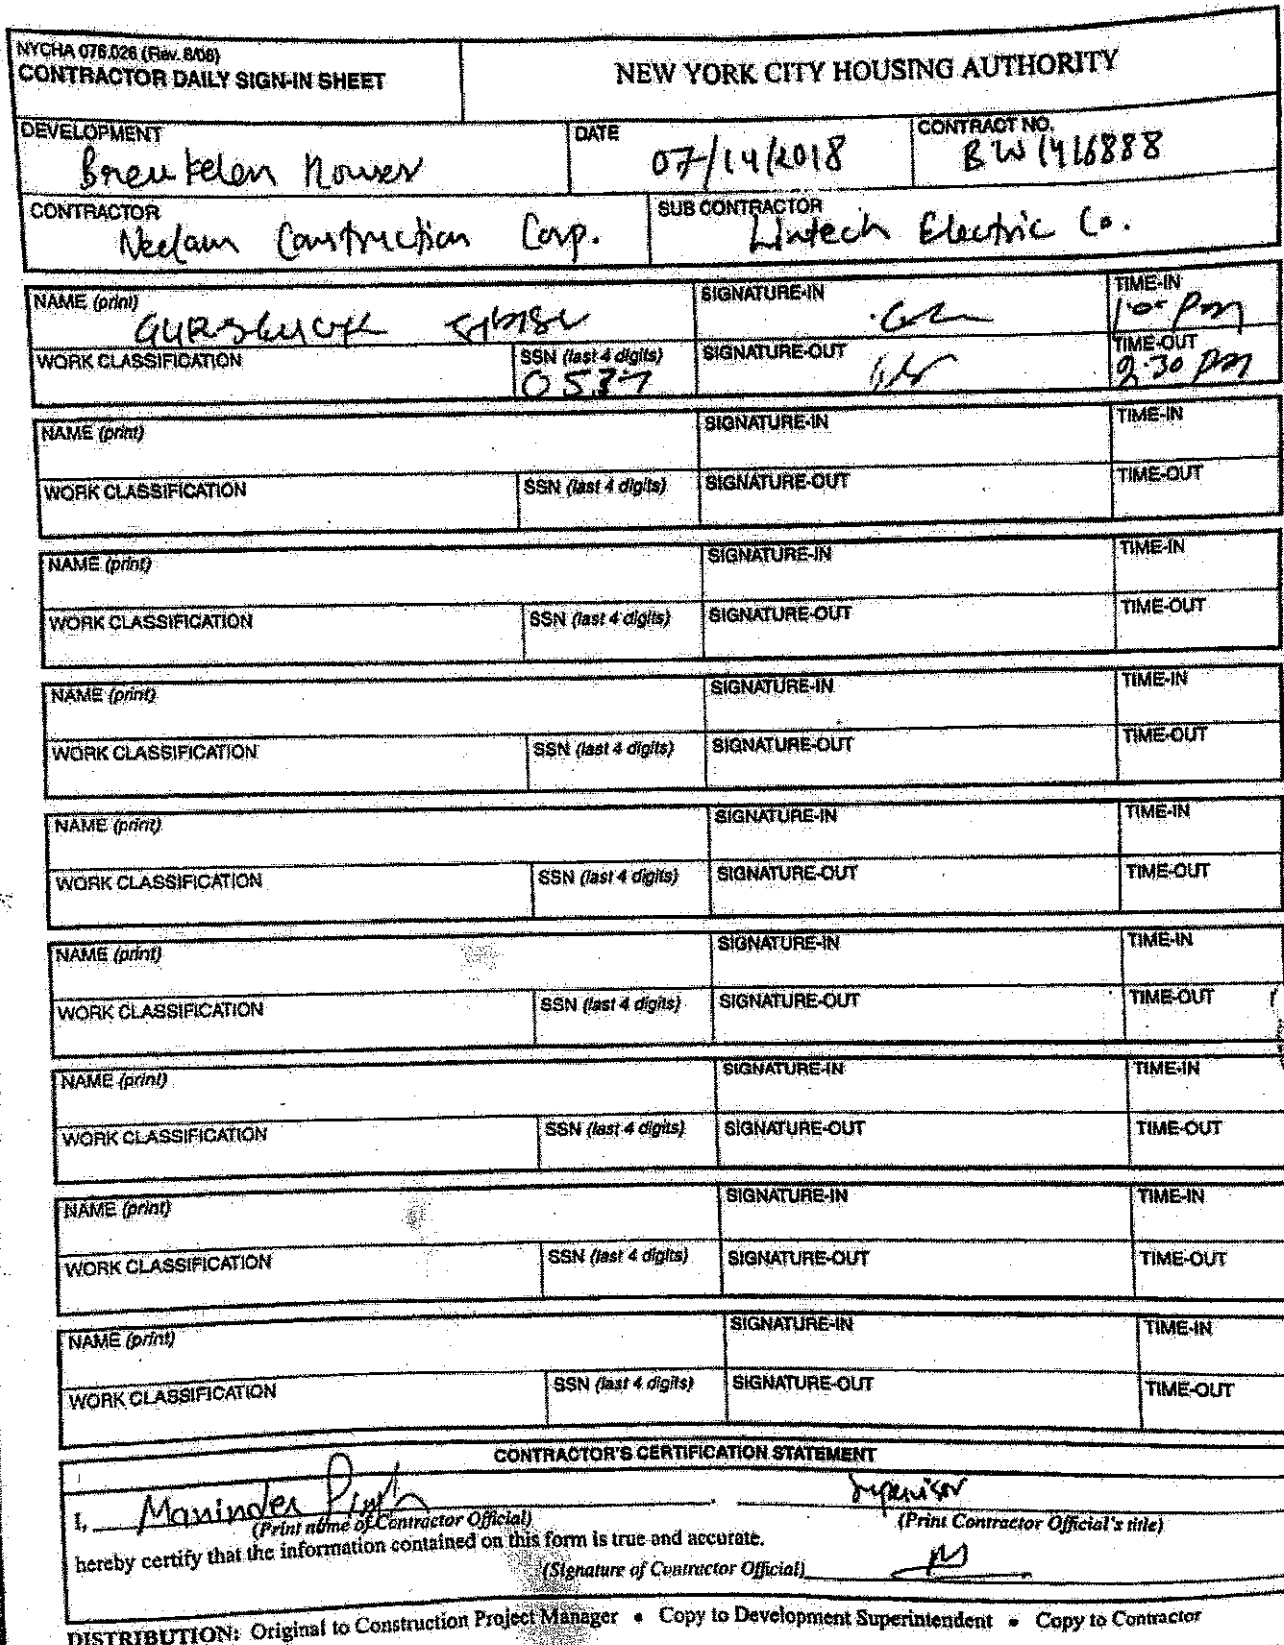 NYCHA 076.026 (Rev. 8/08)
CONTRACTOR DAILY SIGN-IN SHEET
NEW YORK CITY HOUSING AUTHORITY
DEVELOPMENT
Breukelen Houses
DATE
07/14/2018
CONTRACT NO.
BW1416888
CONTRACTOR
Neelam Construction Corp.
SUB CONTRACTOR
Lintech Electric Co.
NAME (print)
SIGNATURE-IN
TIME-IN
1:00 pm
WORK CLASSIFICATION
SSN (last 4 digits)
0537
SIGNATURE-OUT
TIME-OUT
9:30 pm
NAME (print)
SIGNATURE-IN
TIME-IN
WORK CLASSIFICATION
SSN (last 4 digits)
SIGNATURE-OUT
TIME-OUT
NAME (print)
SIGNATURE-IN
TIME-IN
WORK CLASSIFICATION
SSN (last 4 digits)
SIGNATURE-OUT
TIME-OUT
NAME (print)
SIGNATURE-IN
TIME-IN
WORK CLASSIFICATION
SSN (last 4 digits)
SIGNATURE-OUT
TIME-OUT
NAME (print)
SIGNATURE-IN
TIME-IN
WORK CLASSIFICATION
SSN (last 4 digits)
SIGNATURE-OUT
TIME-OUT
NAME (print)
SIGNATURE-IN
TIME-IN
WORK CLASSIFICATION
SSN (last 4 digits)
SIGNATURE-OUT
TIME-OUT
NAME (print)
SIGNATURE-IN
TIME-IN
WORK CLASSIFICATION
SSN (last 4 digits)
SIGNATURE-OUT
TIME-OUT
NAME (print)
SIGNATURE-IN
TIME-IN
WORK CLASSIFICATION
SSN (last 4 digits)
SIGNATURE-OUT
TIME-OUT
NAME (print)
SIGNATURE-IN
TIME-IN
WORK CLASSIFICATION
SSN (last 4 digits)
SIGNATURE-OUT
TIME-OUT
CONTRACTOR'S CERTIFICATION STATEMENT
I, Maninder Singh Supervisor
(Print name of Contractor Official) (Print Contractor Official's title)
hereby certify that the information contained on this form is true and accurate.
(Signature of Contractor Official)
DISTRIBUTION: Original to Construction Project Manager • Copy to Development Superintendent • Copy to Contractor